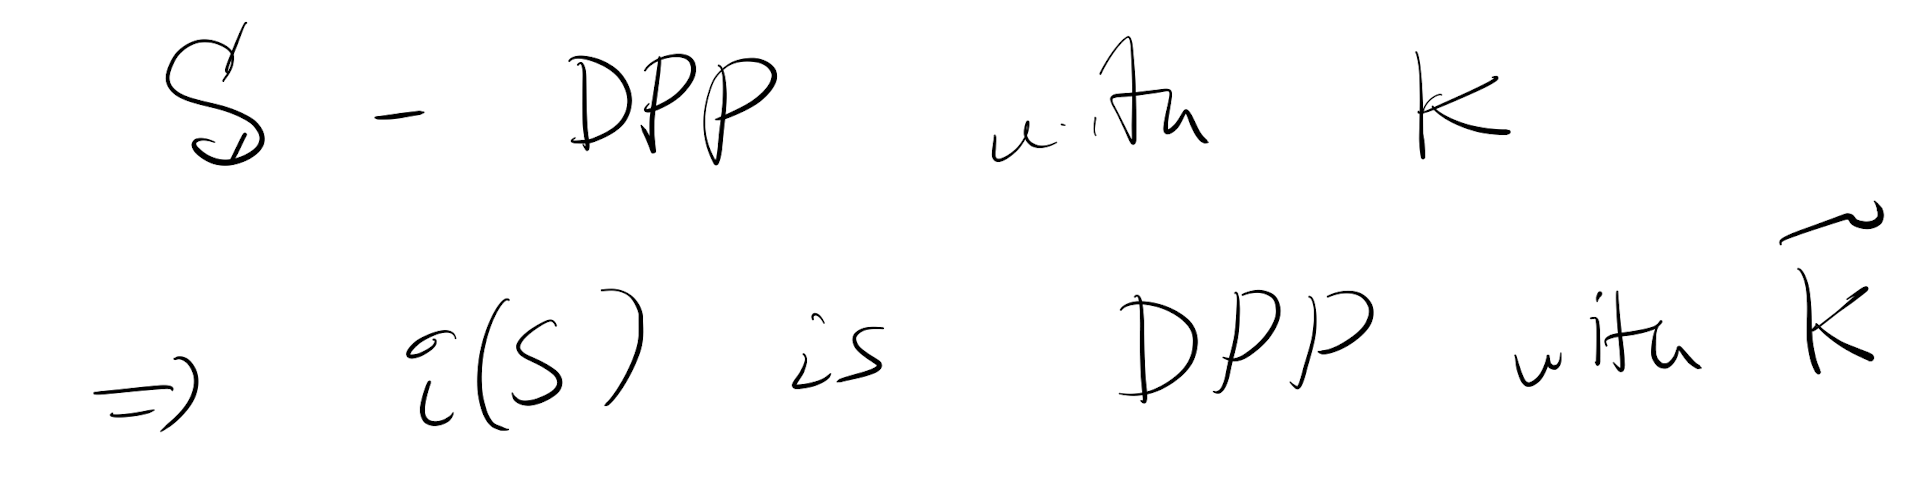 S - DPP with K
⇒ i(S) is DPP with K̃